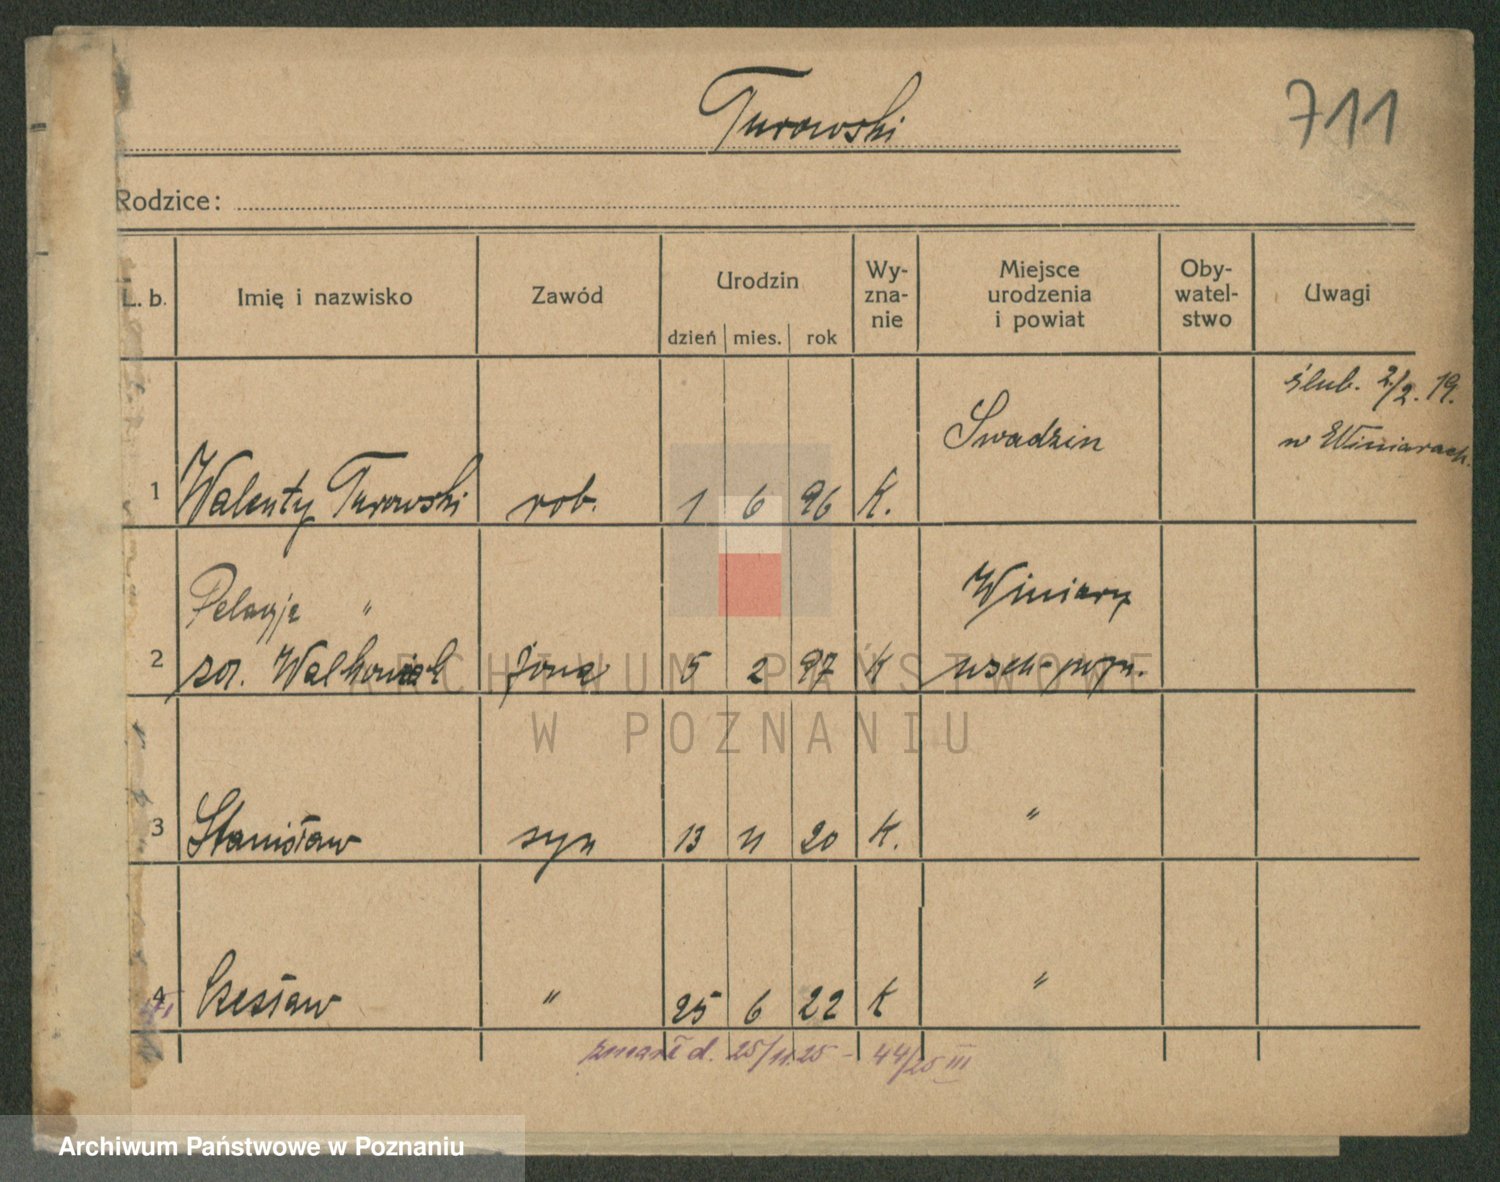 Turowski
711
Rodzice:
L. b.
Imię i nazwisko
Zawód
Urodzin
dzień mies. rok
Wy-
zna-
nie
Miejsce
urodzenia
i powiat
Oby-
watel-
stwo
Uwagi
1 Walenty Turowski rob. 1 6 96 K. Swadzin
ślub. 2/2. 19.
w Winiarach.
Pelagja " Winiary
2 Żona 5 2 97 K
3 Stanisław syn 13 11 20 K. "
4 Czesław " 25 6 22 K "
zmarł d. 25/11.25 - 44/25 III
ARCHIWUM PAŃSTWOWE
W POZNANIU
Archiwum Państwowe w Poznaniu